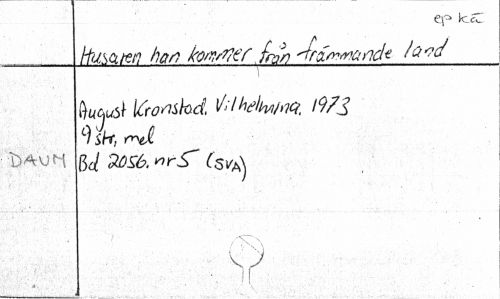 ep kä
Husaren han kommer från främmande land
August Kronstad, Vilhelmina, 1973
9 str, mel
DAUM Bd 2056. nr 5 (SVA)